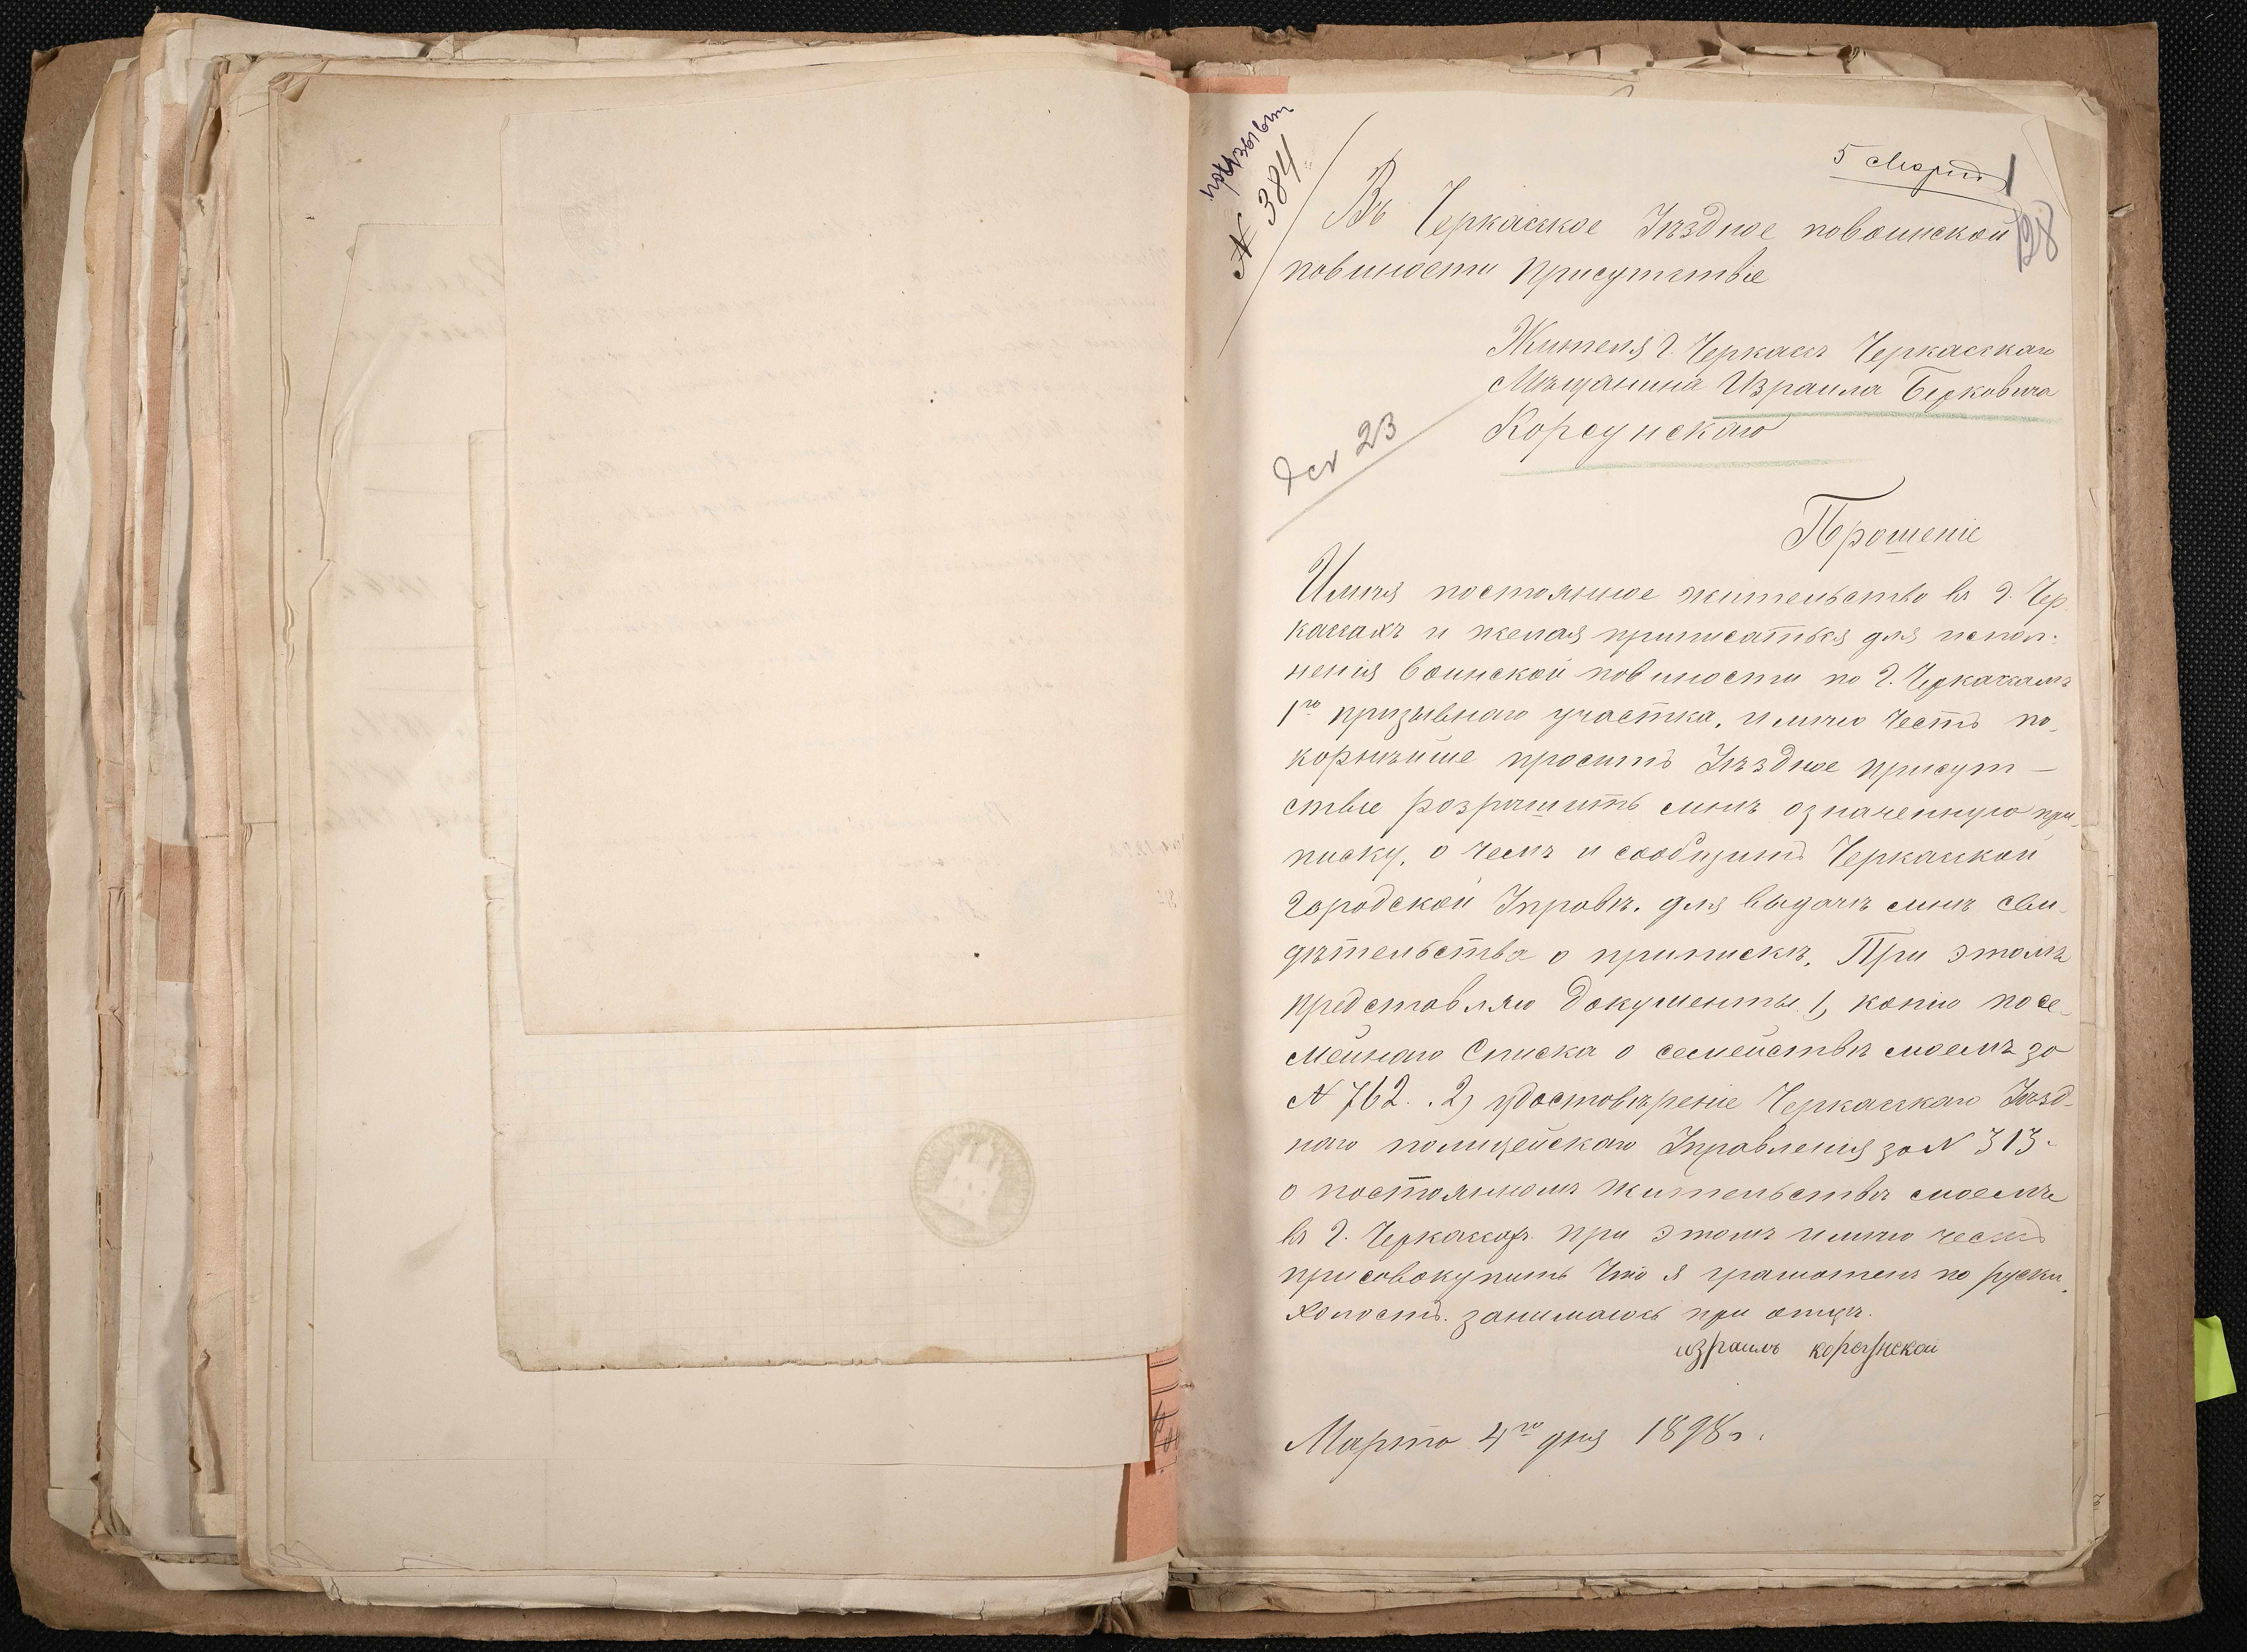 5 Марта
128
№ 384
Въ Черкаское Уѣздное повоинской
повиности Присутствіе
Жителя г. Черкасъ Черкаскаго
Мѣщанина Израиля Берковича
Корсунскаго
23
Прошеніе
Имѣя постоянное жительство въ г. Чер
касахъ и желая приписаться для испол-
ненія воинской повиности по г. Черкасамъ
1го призывнаго участка, имѣю честь по
корнѣйше просить Уѣздное присут—
ствіе розрѣшить мнѣ означенную при
писку, о чемъ и сообщить Черкаской
Городской Управѣ, для выдачѣ мнѣ сви
дѣтельства о припискѣ, При этомъ
представляю Документы 1, копію посе
мейнаго Списка о семействѣ моемъ за
№ 762. 2) удостовѣреніе Черкаскаго Уѣзд-
наго полицейскаго Управленія за № 313.
о постоянномъ жительствѣ моемъ
въ г. Черкасахъ при этомъ имѣю честь
присовокупить что я грамотенъ по руски,
холостъ. занимаюсь при отцѣ.
израиль корсунской
Марта 4го дня 1898 г.